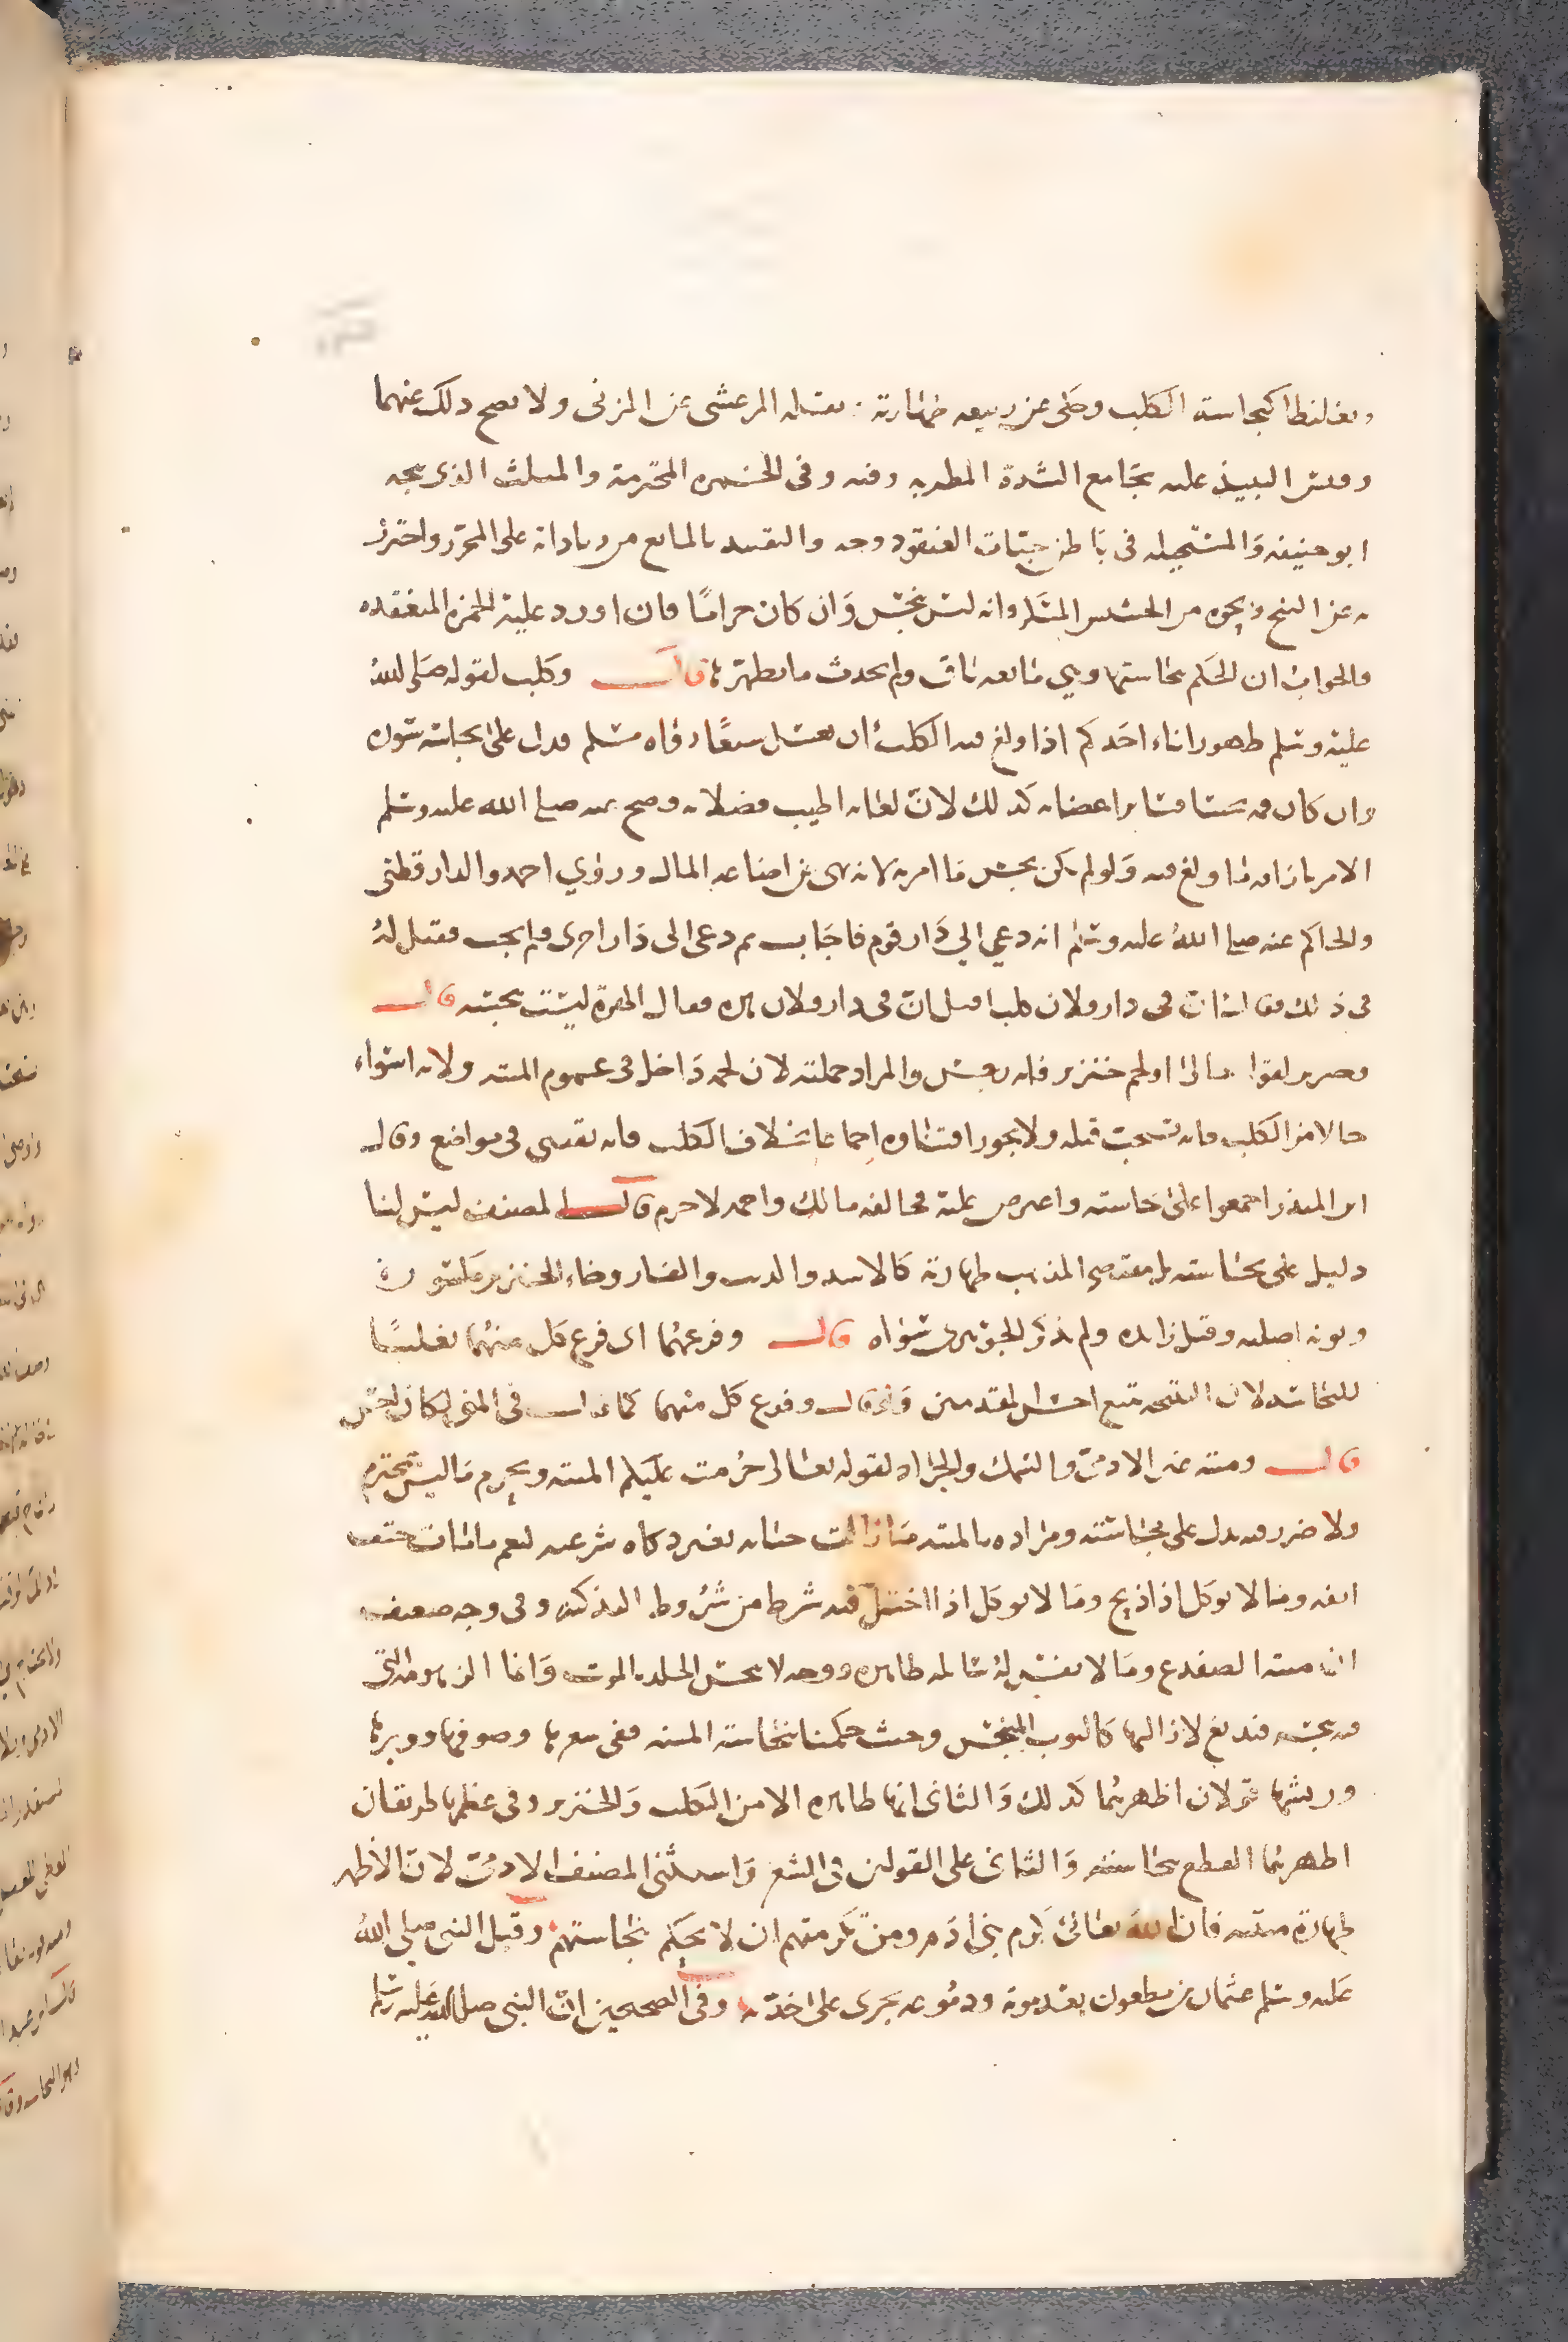 وتغليظا كنجاسة الكلب وحكى عن ربيعه طهارته . ونقله المرعشي عن المزني ولا يصح ذلك عنهما
وقيس النبيذ عليه بجامع الشدة المطربه وفيه وفي الخمره المحترمة والمثلث الذي يبيحه
ابو حنيفه والمستحيله في باطن حبات العنقود وجه والتقييد بالمايع من زياداته على المحرر واحترز
به عن البنج ونحوه من الحشيش المسكر وانه ليس بنجس وان كان حراما فان اورد عليه الخمرة المنعقده
فالجواب ان الحكم بنجاستها وهي مايعه باق ولم يحدث ما يطهرها قال وكلب لقوله صلى الله
عليه وسلم طهور اناء احدكم اذا ولغ فيه الكلب ان يغسل سبعا رواه مسلم فدل على نجاسة سوره
وان كان فمه نجسا فسائر اعضائه كذلك لان لعابه اطيب فضلاته وصح عنه صلى الله عليه وسلم
الامر باراقة ما ولغ فيه ولو لم يكن نجس ما امر به لانه نهى عن اضاعه المال وروي احمد والدارقطني
والحاكم عنه صلى الله عليه وسلم انه دعي الي دار قوم فاجاب ثم دعى الى دار اخرى فلم يجب فقيل له
في ذلك فقال ان في دار فلان كلبا قيل ان في دار فلان هره فقال الهرة ليست بنجسه قال
وخنزير لقوله تعالى او لحم خنزير فانه رجس والمراد جملته لان لحمه داخل في عموم الميته ولانه اسواء
حالا من الكلب فانه يستحب قتله ولا يجوز اقتناوه اجماعا بخلاف الكلب فانه يقتنى في مواضع وقال
ابن المنذر اجمعوا على نجاسته واعترض عليه بمخالفه مالك واحمد لا جرم قال المصنف ليس لنا
دليل على نجاسته بل مقتضى المذهب طهارته كالاسد والذيب والفار وجاء الخنزير مكسوره
ونونه اصليه وقيل زايده ولم يذكر الجوهري سواه قال وفرعهما اى فرع كل منهما تغليبا
للنجاسه لان النتيجه تتبع اخس المقدمتين ولو قال وفرع كل منهما كما قال في المني لكان احسن
قال وميتة غير الادمي والسمك والجراد لقوله تعالى حرمت عليكم الميته وتحريم ما ليس بمحترم
ولا ضرر فيه يدل على نجاسته ومراده بالميته ما زالت حياته بغير ذكاه شرعيه ليعم ما مات حتف
انفه وما لا يوكل اذا ذبح وما لا يوكل اذا اختل فيه شرط من شروط التذكيه وفي وجه ضعيف
ان ميته الضفدع وما لا نفس له سائله طاهره ووجه لا ينجس الجلد بالموت وانما الزهومه التي
فيه نجسه فيدبغ لازالتها كالثوب المتنجس وحيث حكمنا بنجاسة الميته ففي شعرها وصوفها ووبرها
وريشها قولان اظهرهما كذلك والثاني انها طاهره الا من الكلب والخنزير وفي عظمها طريقان
اظهرهما القطع بنجاسته والثاني على القولين في الشعر واستثنى المصنف الادمي لان الاظهر
طهارة ميتته فان الله تعالى كرم بني ادم ومن تكرمتهم ان لا يحكم بنجاستهم وقبل النبي صلى الله
عليه وسلم عثمان بن مظعون بعد موته ودموعه تجرى على خده وفي الصحيحين ان النبي صلى الله عليه وسلم